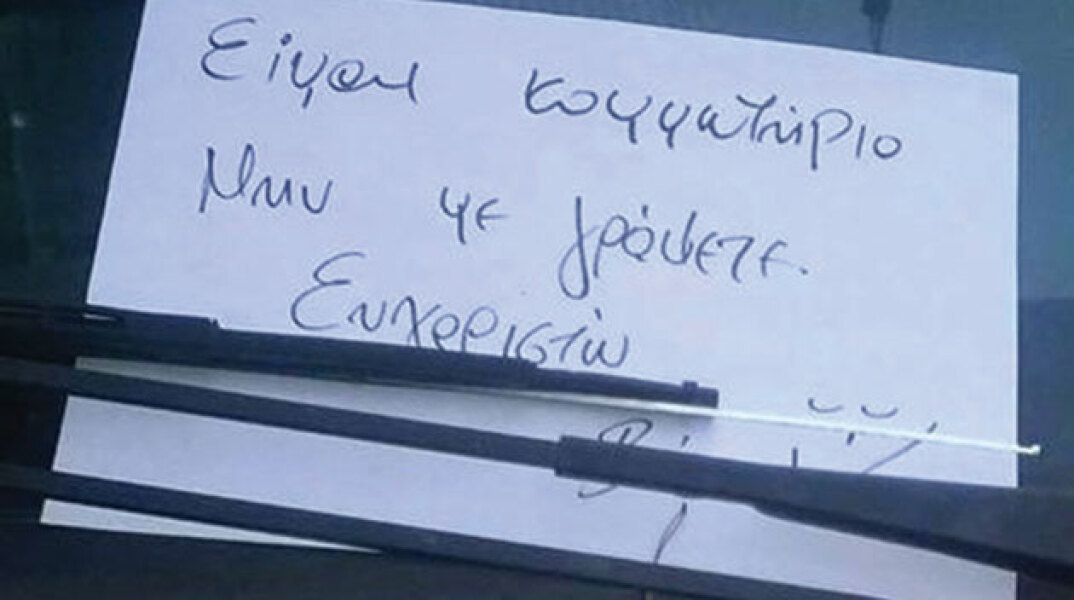 Είμαι κομμωτήριο
Μην με γράψετε.
Ευχαριστώ